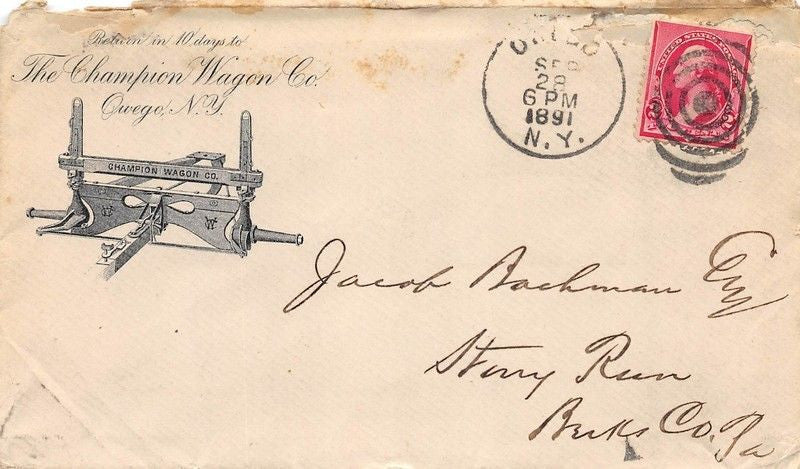 Return in 10 days to
The Champion Wagon Co.
Owego, N.Y.
CHAMPION WAGON CO.
SEP
28
6 PM
1891
N.Y.
UNITED STATES
2
2
Jacob Bachman Esq
Stony Run
Berks Co. Pa